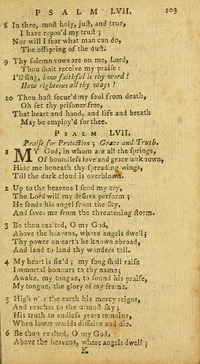 PSALM LVII. 103
8 In thee, most holy, just, and true,
I have repos'd my trust;
Nor will I fear what man can do,
The offspring of the dust.
9 Thy solemn vows are on me, Lord,
Thou shalt receive my praise:
I'll sing, how faithful is thy word!
How righteous all thy ways!
10 Thou hast secur'd my soul from death,
Oh set thy prisoner free,
That heart and hand, and life and breath
May be employ'd for thee.
PSALM LVII.
Praise for Protection; Grace and Truth.
1 MY God, in whom are all the springs,
Of boundless love and grace unknown,
Hide me beneath thy spreading wings,
Till the dark cloud is overblown.
2 Up to the heavens I send my cry,
The Lord will my desires perform;
He sends his angel from the sky,
And saves me from the threatening storm.
3 Be thou exalted, O my God,
Above the heavens, where angels dwell;
Thy power on earth be known abroad,
And land to land thy wonders tell.
4 My heart is fix'd; my song shall raise
Immortal honours to thy name;
Awake, my tongue, to sound his praise,
My tongue, the glory of my frame.
5 High o'er the earth his mercy reigns,
And reaches to the utmost sky;
His truth to endless years remains,
When lower worlds dissolve and die.
6 Be thou exalted, O my God,
Above the heavens, where angels dwell;
K